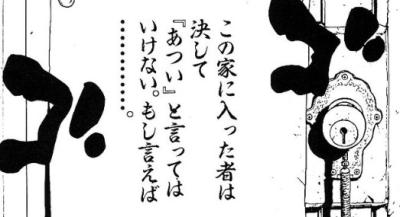 この家に入った者は
決して
『あつい』と言っては
いけない。もし言えば
…………。
ゴ
ゴ